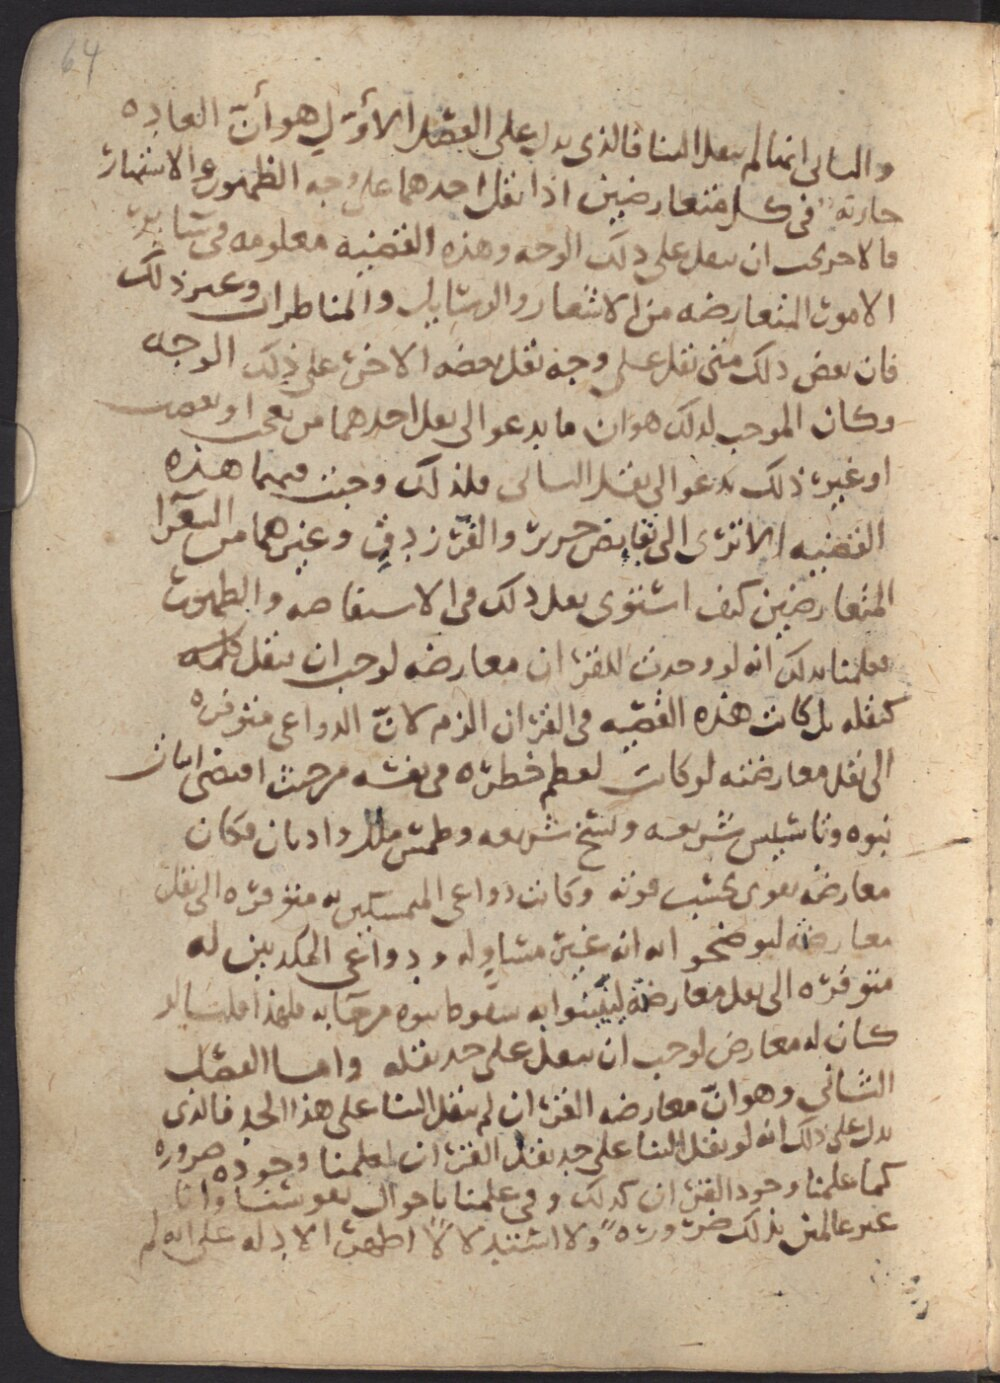 64
والثاني انها لم ينقل الينا فالذي يدل على الفصل الأول هو أنّ العاده
جاريه في كل متعارضين اذا نقل احدهما على وجه الظهور والاشتهار
فالاحرى ان ينقل على ذلك الوجه وهذه القضيه معلومه في سائر
الامور المتعارضه من الاشعار والرسايل والمناظرات وغير ذلك
فان بعض ذلك متى نقل على وجه نقل بعضه الاخر على ذلك الوجه
وكان الموجب لذلك هو ان ما يدعو الى نقل احدهما من تعجب او تعصب
او غير ذلك يدعو الى نقل الثاني فلذلك وجبت فيهما هذه
القضيه الا ترى الى نقايض جرير والفرزدق وغيرهما من الشعرا
المتعارضين كيف استوى نقل ذلك في الاستفاضه والظهور
فعلمنا بذلك انه لو وجدت للقران معارضه لوجب ان تنقل كلمه
كنقله بل كانت هذه القضيه في القران الزم لانّ الدواعي متوفره
الى نقل معارضته لو كانت لعظم خطره في نفسه من حيث اقتضى اثبات
نبوه وتاسيس شريعه ونسخ شريعه وطمس ملل واديان فكان
معارضه يقوى بحسب قوته وكانت دواعي المتمسكين به متوفره الى نقل
معارضه ليوضحوا انه غير مساو له ودواعي المكذبين له
متوفره الى نقل معارضته ليبينوا به سقوط نبوه من جا به فلهذا قلنا لو
كان له معارض لوجب ان ينقل على حد نقله واما الفصل
الثاني وهو انّ معارضه القران لم تنقل الينا على هذا الحد فالذي
يدل على ذلك انه لو نقل الينا على حد نقل القران لعلمنا وجوده ضروره
كما علمنا وجود القران كذلك وفي علمنا باحوال نفوسنا وانا
غير عالمين بذلك ضرورةً ولا استدلالاً اظهر الادله على انه لم